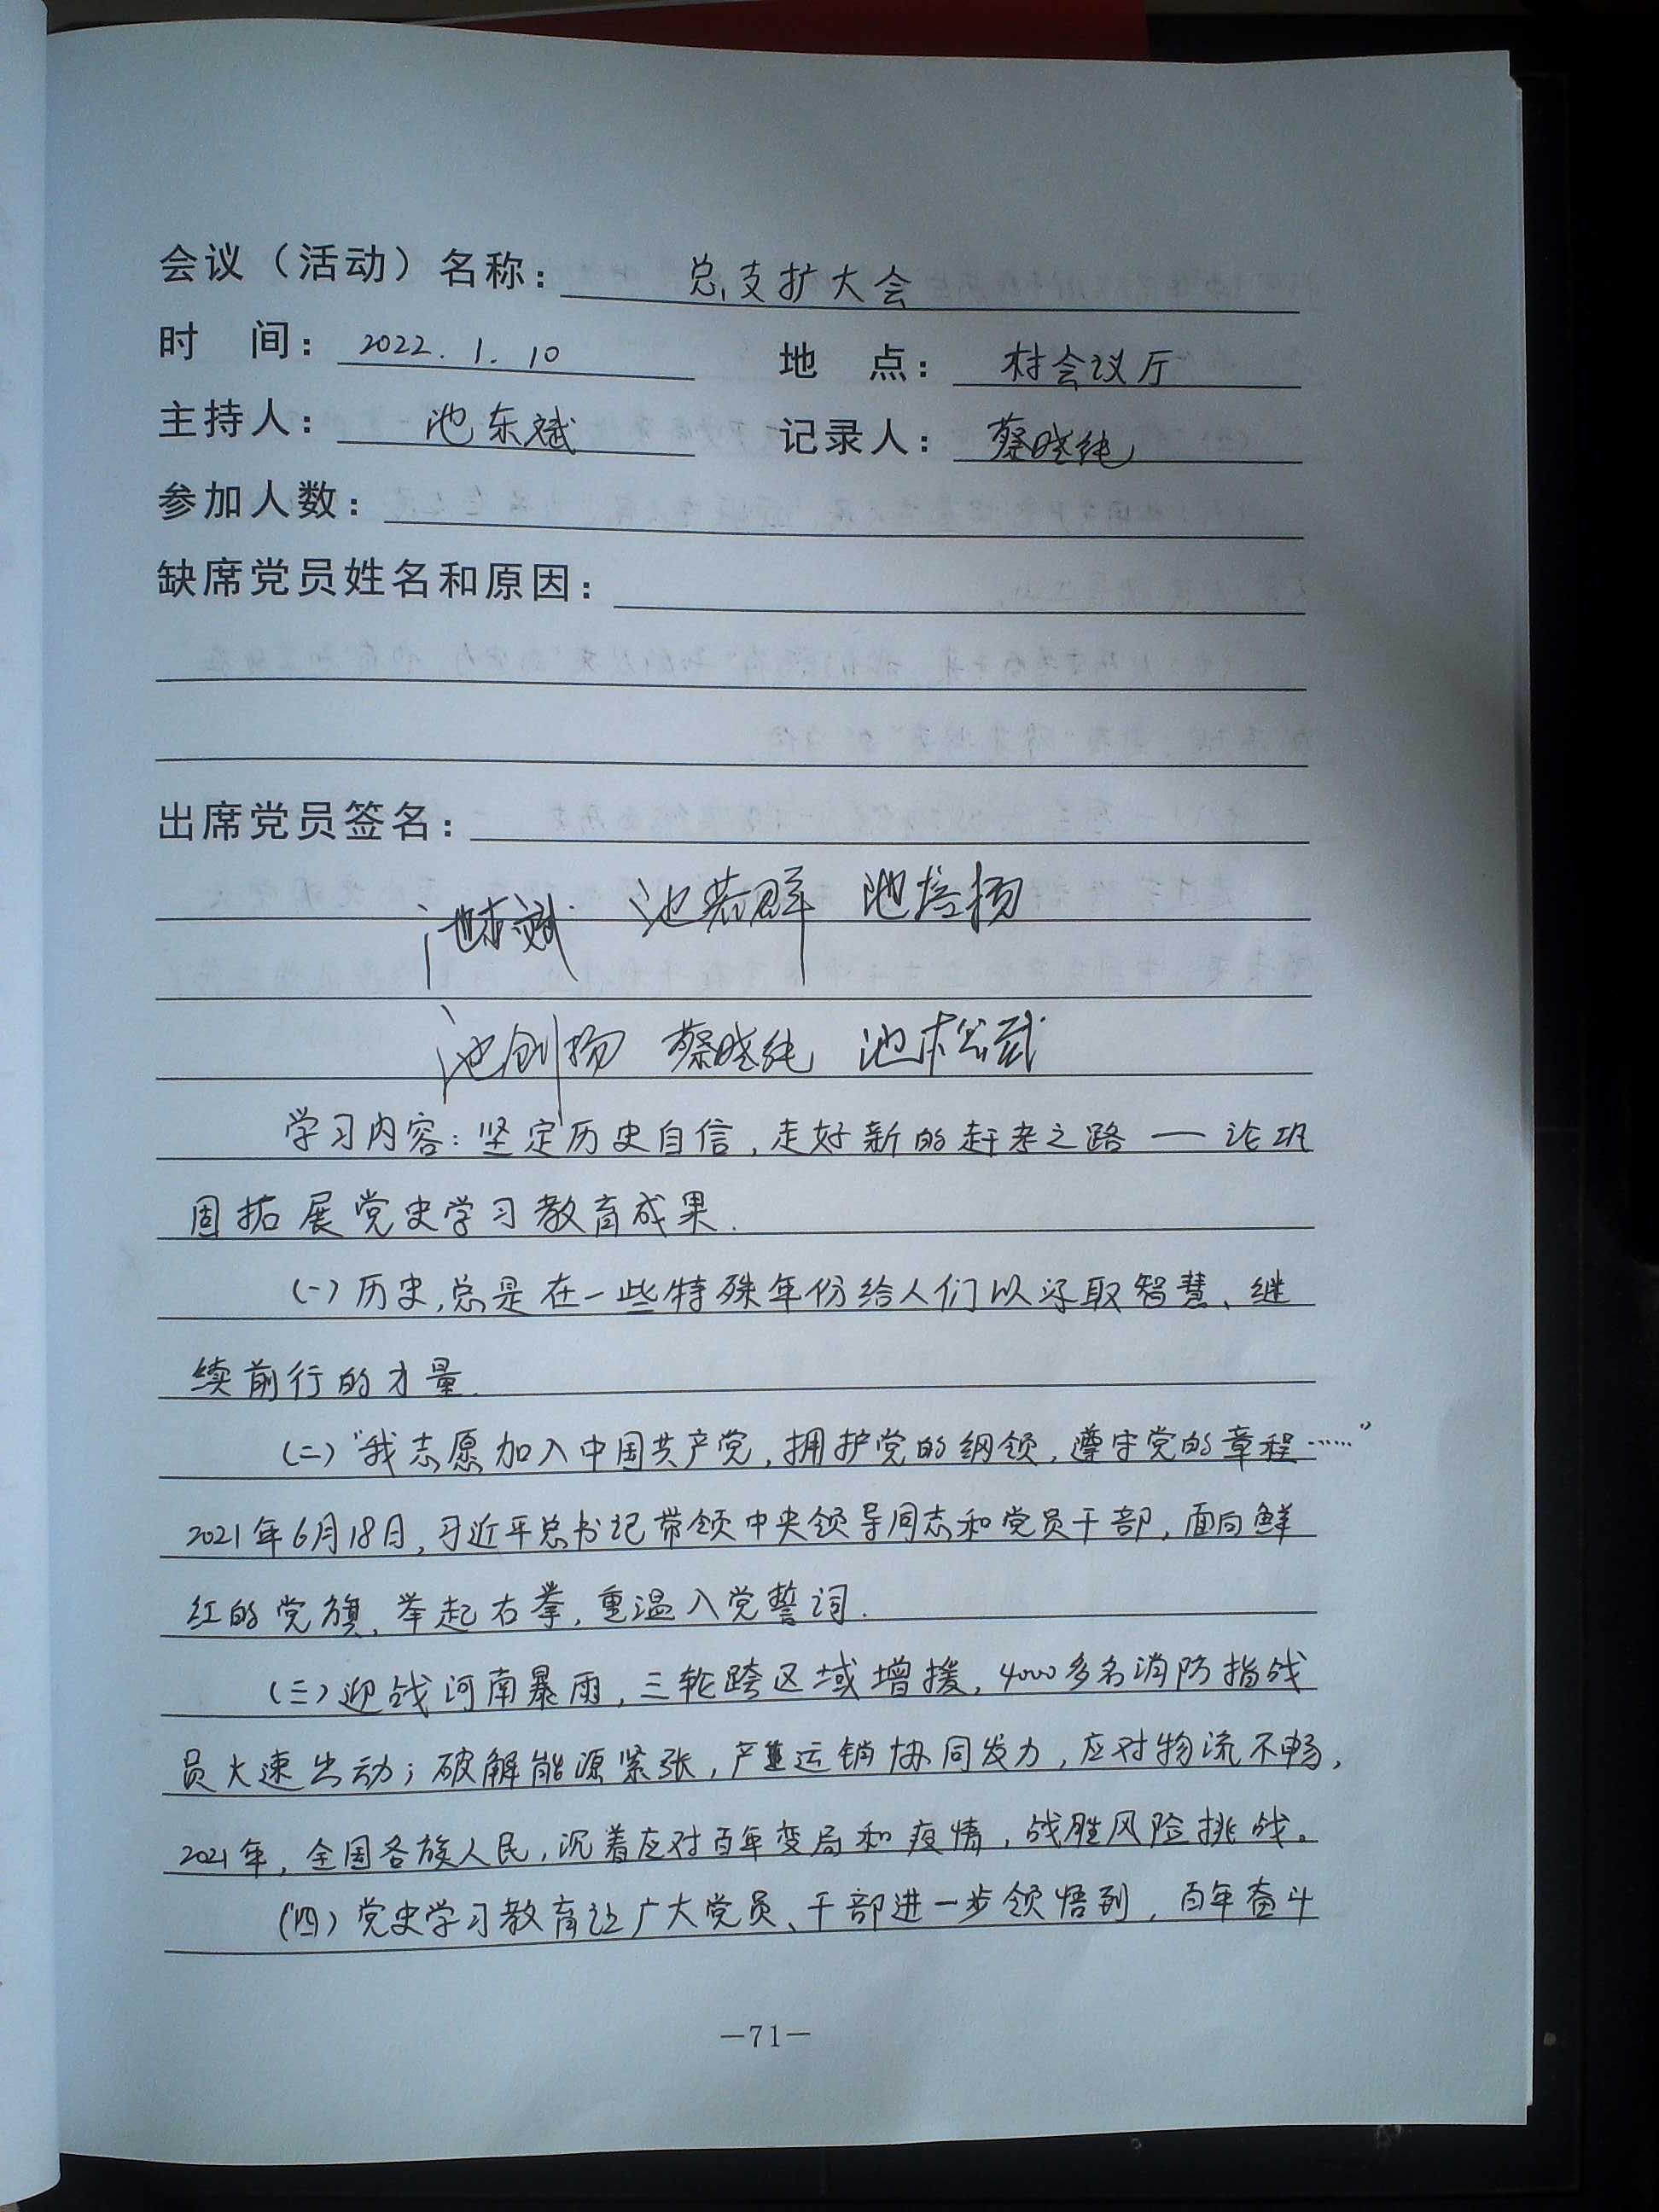 会议（活动）名称： 总支扩大会
时　间： 2022.1.10　地　点： 村会议厅
主持人： 池东斌　记录人： 蔡晓纯
参加人数：
缺席党员姓名和原因：
出席党员签名：
池东斌 池若群 池培扬
池创扬 蔡晓纯 池松武
学习内容：坚定历史自信，走好新的赶考之路 — 论巩
固拓展党史学习教育成果.
(一)历史,总是在一些特殊年份给人们以汲取智慧、继
续前行的力量.
(二)"我志愿加入中国共产党,拥护党的纲领,遵守党的章程……"
2021年6月18日,习近平总书记带领中央领导同志和党员干部,面向鲜
红的党旗、举起右拳,重温入党誓词.
(三)迎战河南暴雨,三轮跨区域增援,4000多名消防指战
员火速出动；破解能源紧张,产运销协同发力,应对物流不畅,
2021年,全国各族人民,沉着应对百年变局和疫情,战胜风险挑战。
(四)党史学习教育让广大党员、干部进一步领悟到,百年奋斗
—71—